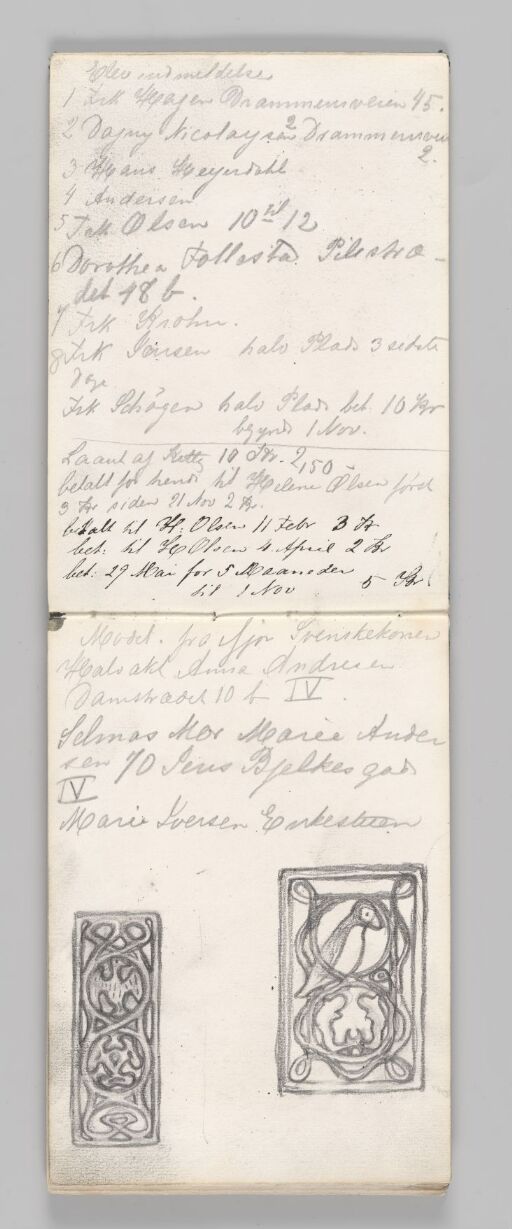 Elev indmeldelse
1 Frk Hagen Drammensveien 45.
2 Dagny Nicolaysen 2 Drammensvei
2.
3 Hans Heyerdahl
4 Andersen
5 Frk Olsen 10 til 12
6 Dorothea Follestad Pilestræ-
det 48 b.
7 Frk Krohn.
8 Frk Jensen halv Plads 3 sidste
Dage
Frk halv Plads bet. 10 Kr
begynd 1 Nov.
Laant af Kitty 10 Kr. 2,150
betalt for hende til Helene Olsen først
3 Kr siden 21 Nov 2 Kr.
betalt til H. Olsen 11 Febr 3 Kr
bet: til H Olsen 4 April 2 Kr
bet: 29 Mai for 5 Maaneder
til 1 Nov 5 Kr
Model. fra ifjor Svenskekonen
Halvakt Anna Andresen
Damstrædet 10 b IV.
Selmas Mor Marie Ander
sen 70 Jens Bjelkes gad
IV
Marie Iversen